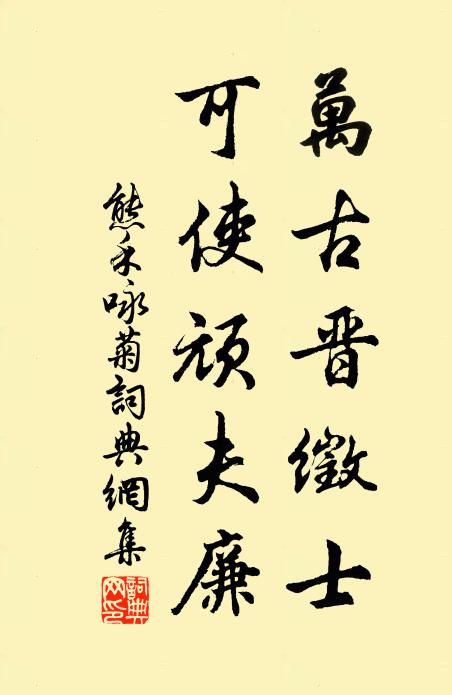 萬古晋徵士
可使頑夫廉
熊禾咏菊詞典網集
詞典网印